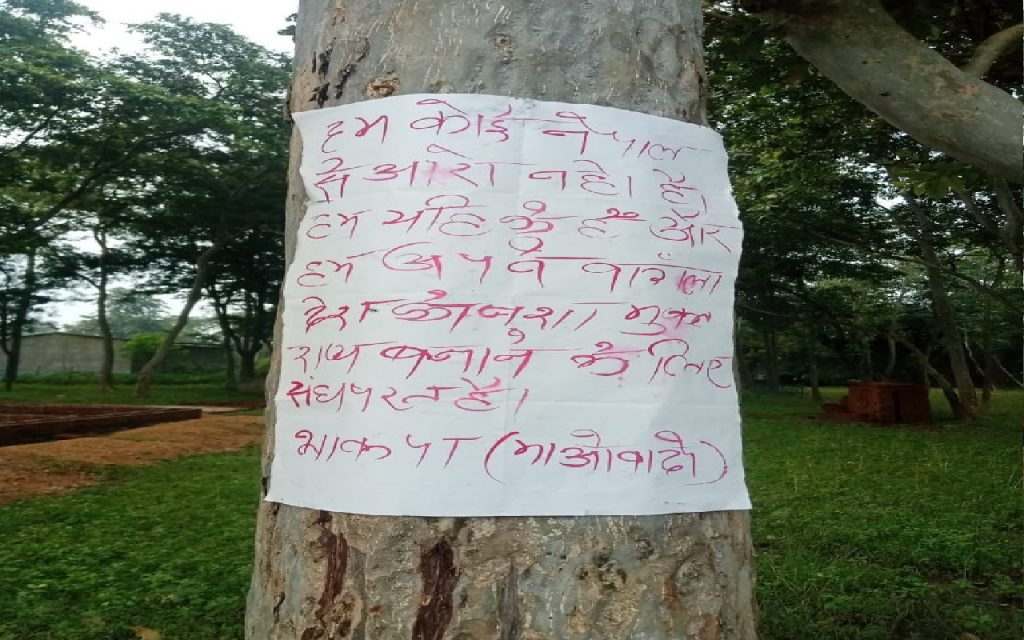 हम कोई नेपाल
से आरो नहीं हैं।
हम यहि के हैं और
हम अपने
देश को नशा मुक्त
राज बनाने के लिए
संघर्षरत हैं।
भाकपा (माओवादी)